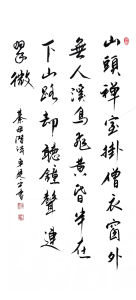 山頭禪室掛僧衣窗外
無人溪鳥飛黃昏半在
下山路卻聽鐘聲連
翠微
綦毋潛詩